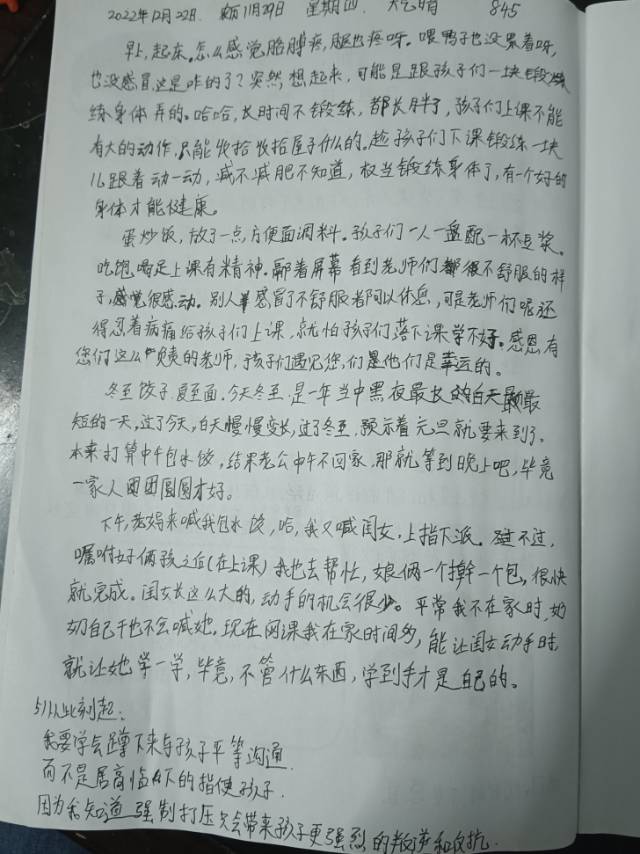 2022年12月22日. 农历11月29日 星期四 天气晴 845
早上,起床。怎么感觉胳膊疼,腿也疼呀。喂鸭子也没累着呀,
也没感冒,这是咋的了?突然,想起来,可能是跟孩子们一块锻炼
练身体弄的。哈哈,长时间不锻练,都长胖了,孩子们上课不能
有大的动作,只能收拾收拾屋子什么的,趁孩子们下课锻练一块
儿跟着动一动,减不减肥不知道,权当锻练身体了,有一个好的
身体才能健康。
蛋炒饭,放了一点,方便面调料。孩子们一人一盘配一杯豆浆。
吃饱喝足上课有精神。隔着屏幕看到老师们都很不舒服的样
子,感觉很感动。别人感冒了不舒服者可以休息,可是老师们呢还
得忍着病痛给孩子们上课,就怕孩子们落下课学不好。感恩有
您们这么负责的老师,孩子们遇见您,们是他们是幸运的。
冬至饺子夏至面.今天冬至.是一年当中黑夜最长的白天最
短的一天,过了今天,白天慢慢变长,过了冬至,预示着元旦就要来到了。
本来打算中午包水饺,结果老公中午不回家,那就等到晚上吧,毕竟
一家人团团圆圆才好。
下午,老妈来喊我包水饺,哈,我又喊闺女,上指下派。不过,
嘱咐好俩孩之后(在上课)我也去帮忙,娘俩一个擀一个包,很快
就完成。闺女长这么大的,动手的机会很少。平常我不在家时,奶
奶自己干也不会喊她,现在网课我在家时间多,能让闺女动手时
就让她学一学,毕竟,不管什么东西,学到手才是自己的。
51从此刻起:
我要学会蹲下来与孩子平等沟通
而不是居高临下的指使孩子.
因为我知道强制打压只会带来孩子更强烈的叛逆和反抗.